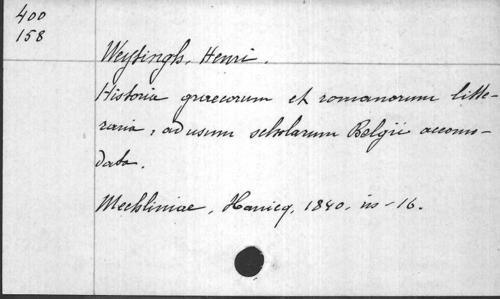 400
158
Weytingh, Henri.
Historia græcorum et romanorum litte-
raria, ad usum scholarum Belgii accomo-
data.
Mechliniae, Hanicq, 1840. in-16.